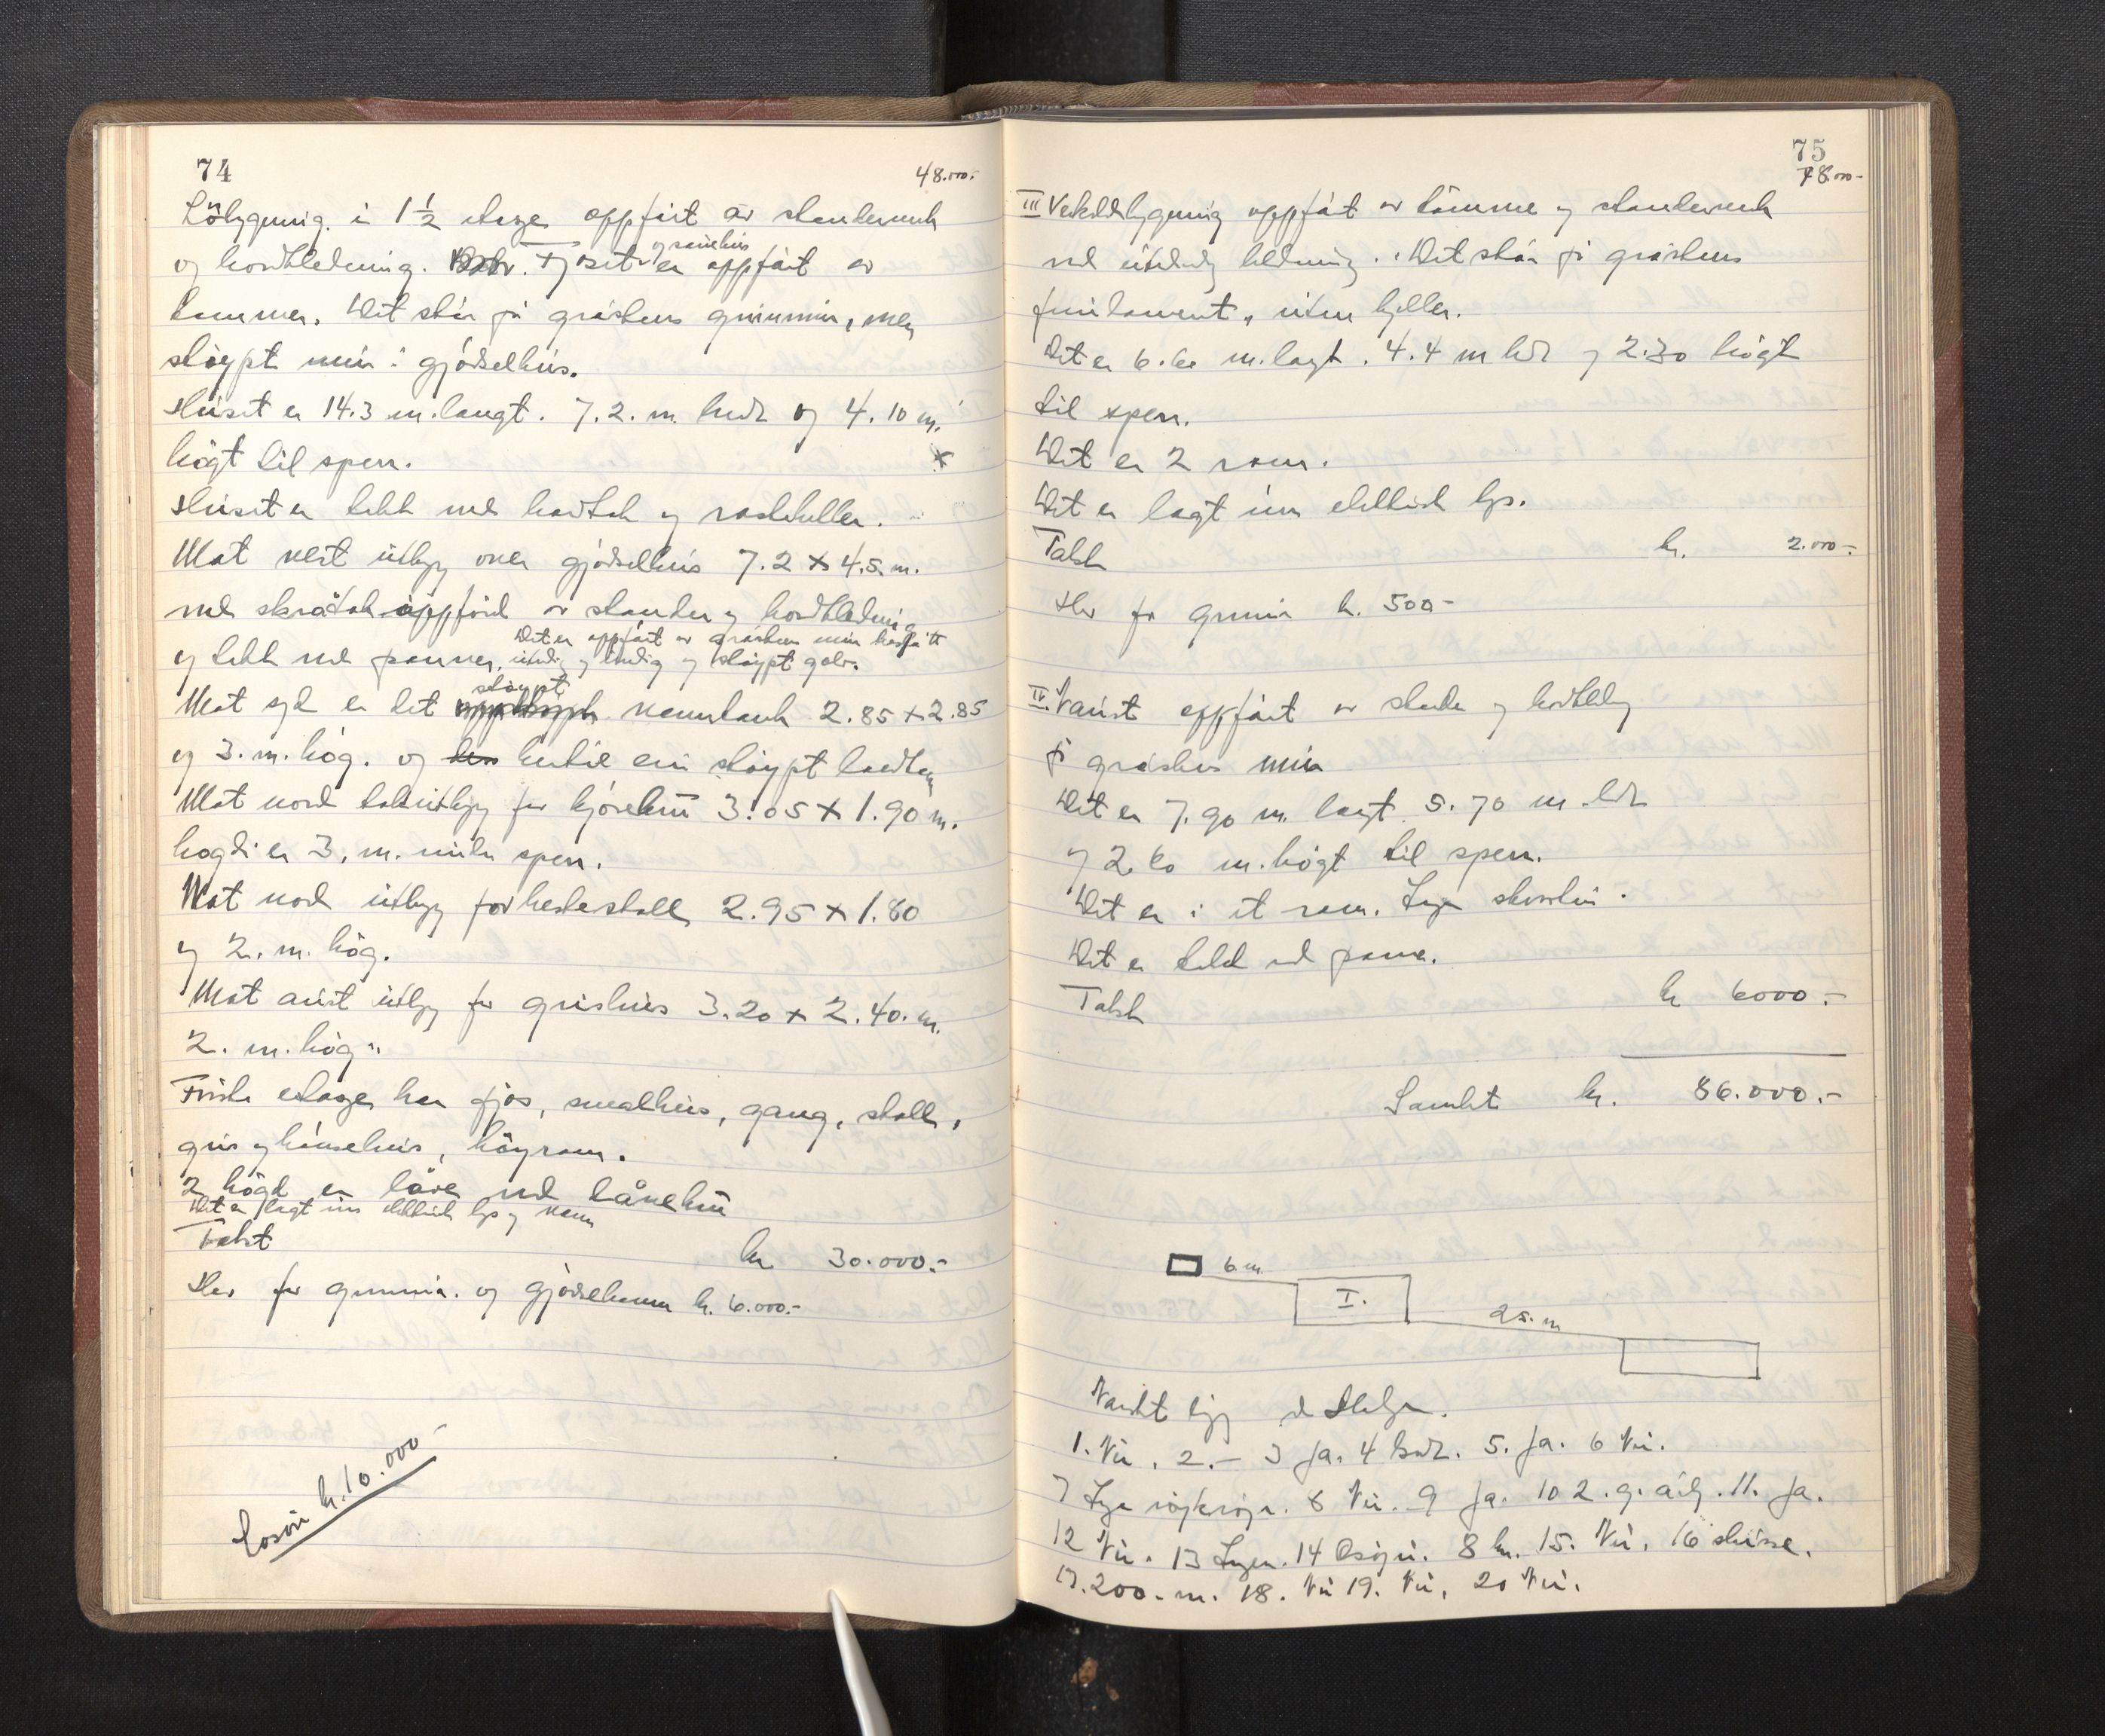 74
48.000.-
Löbygning. i 1½ etage oppført av standerverk
og bordkledning. Fjøset og sauehus er oppført av
tømmer. Det står på gråstens grunnmur, men
støypt mur i gjødselhus.
Huset er 14.3 m. langt. 7.2. m. bredt og 4.10 m.
høgt til sperr.
Huset er tekt med bordtak og rasteheller.
Mot vest utbygg over gjødselhus 7.2 x 4.5. m.
med skråtak oppført av stander og bordkledning
Det er oppført av gråstens mur
og tekt med panner, utvendig og innvendig og støypt golv.
Mot syd er det støypt vanntank 2.85 x 2.85
og 3. m. høg. og ein støypt
Mot nord takutbygg for kjørebru 3.05 x 1.90 m.
høgdi er 3. m. under sperr.
Mot nord utbygg for hestestall 2.95 x 1.80
og 2. m. høg.
Mot aust utbygg for grishus 3.20 x 2.40. m.
2. m. høg.
Første etage har fjøs, smalhus, gang, stall,
gris og hønsehus, høyrom.
2 høgd er låve med låvebru
Det er lagt inn elektrisk lys og vann
Takst kr 30.000.-
Herav for grunnmur. og gjødselkum kr. 6.000.-
kr. 10.000-
75
78.000-
III Vedskålbygning oppført av tømmer og standerverk
med utvendig kledning. Det står på gråstens
fundament, uten kjeller.
Det er 6.60 m. langt. 4.4 m bredt og 2.30 høgt
til sperr.
Det er 2 rom.
Det er lagt inn elektrisk lys.
Takst kr. 2.000-
Herav for grunnmur kr. 500-
IV. Naust oppført av stender og bordkledning
på gråstens mur
Det er 7.90 m. langt 5.70 m. bredt
og 2.60 m. høgt til sperr.
Det er i et rom. Ingen skorstein.
Det er tekt med panner.
Takst kr 6000.-
Samlet kr. 86.000.-
6 m.
I.
25. m
Naustet ligg ved
1. Nei. 2. - 3 Ja. 4 bord. 5. Ja. 6 Nei.
7 Ingen 8 Nei. 9 Ja. 10 2. g. årlig. 11. Ja.
12 Nei. 13 Ingen. 14 8 km. 15. Nei. 16
17. 200. m. 18. Nei 19. Nei. 20 Nei.